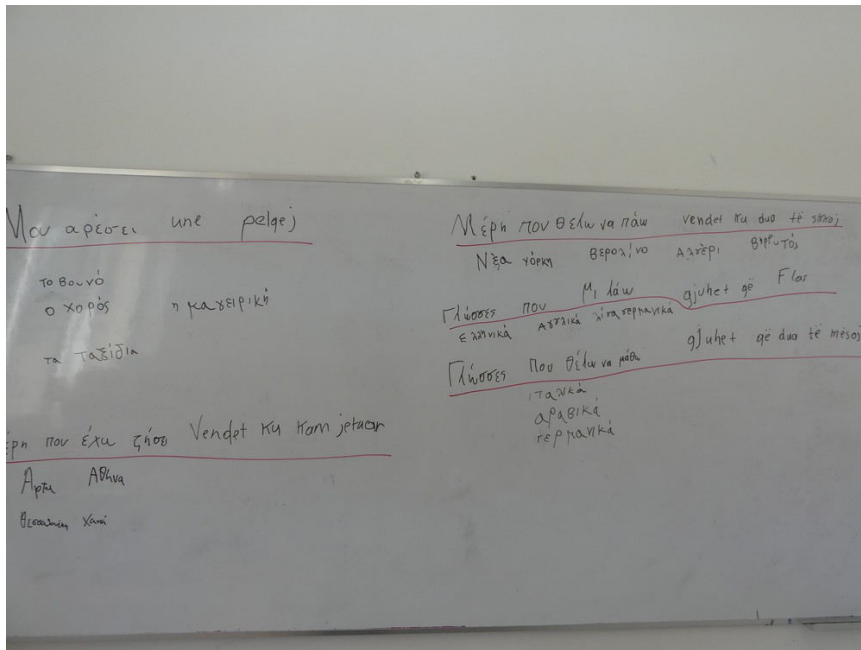 Μου αρέσει une pelqej
το βουνό
ο χορός η μαγειρική
τα ταξίδια
έρη που έχω ζήσει Vendet ku kam jetuar
Άρτα Αθήνα
Θεσσαλονίκη Χανιά
Μέρη που θέλω να πάω vendet ku dua të shkoj
Νέα Υόρκη Βερολίνο Αλγέρι Βηρυτός
Γλώσσες που μιλάω gjuhet që Flas
Ελληνικά Αγγλικά λίγα γερμανικά
Γλώσσες που θέλω να μάθω gjuhet që dua të mësoj
ιταλικά
αραβικά
γερμανικά